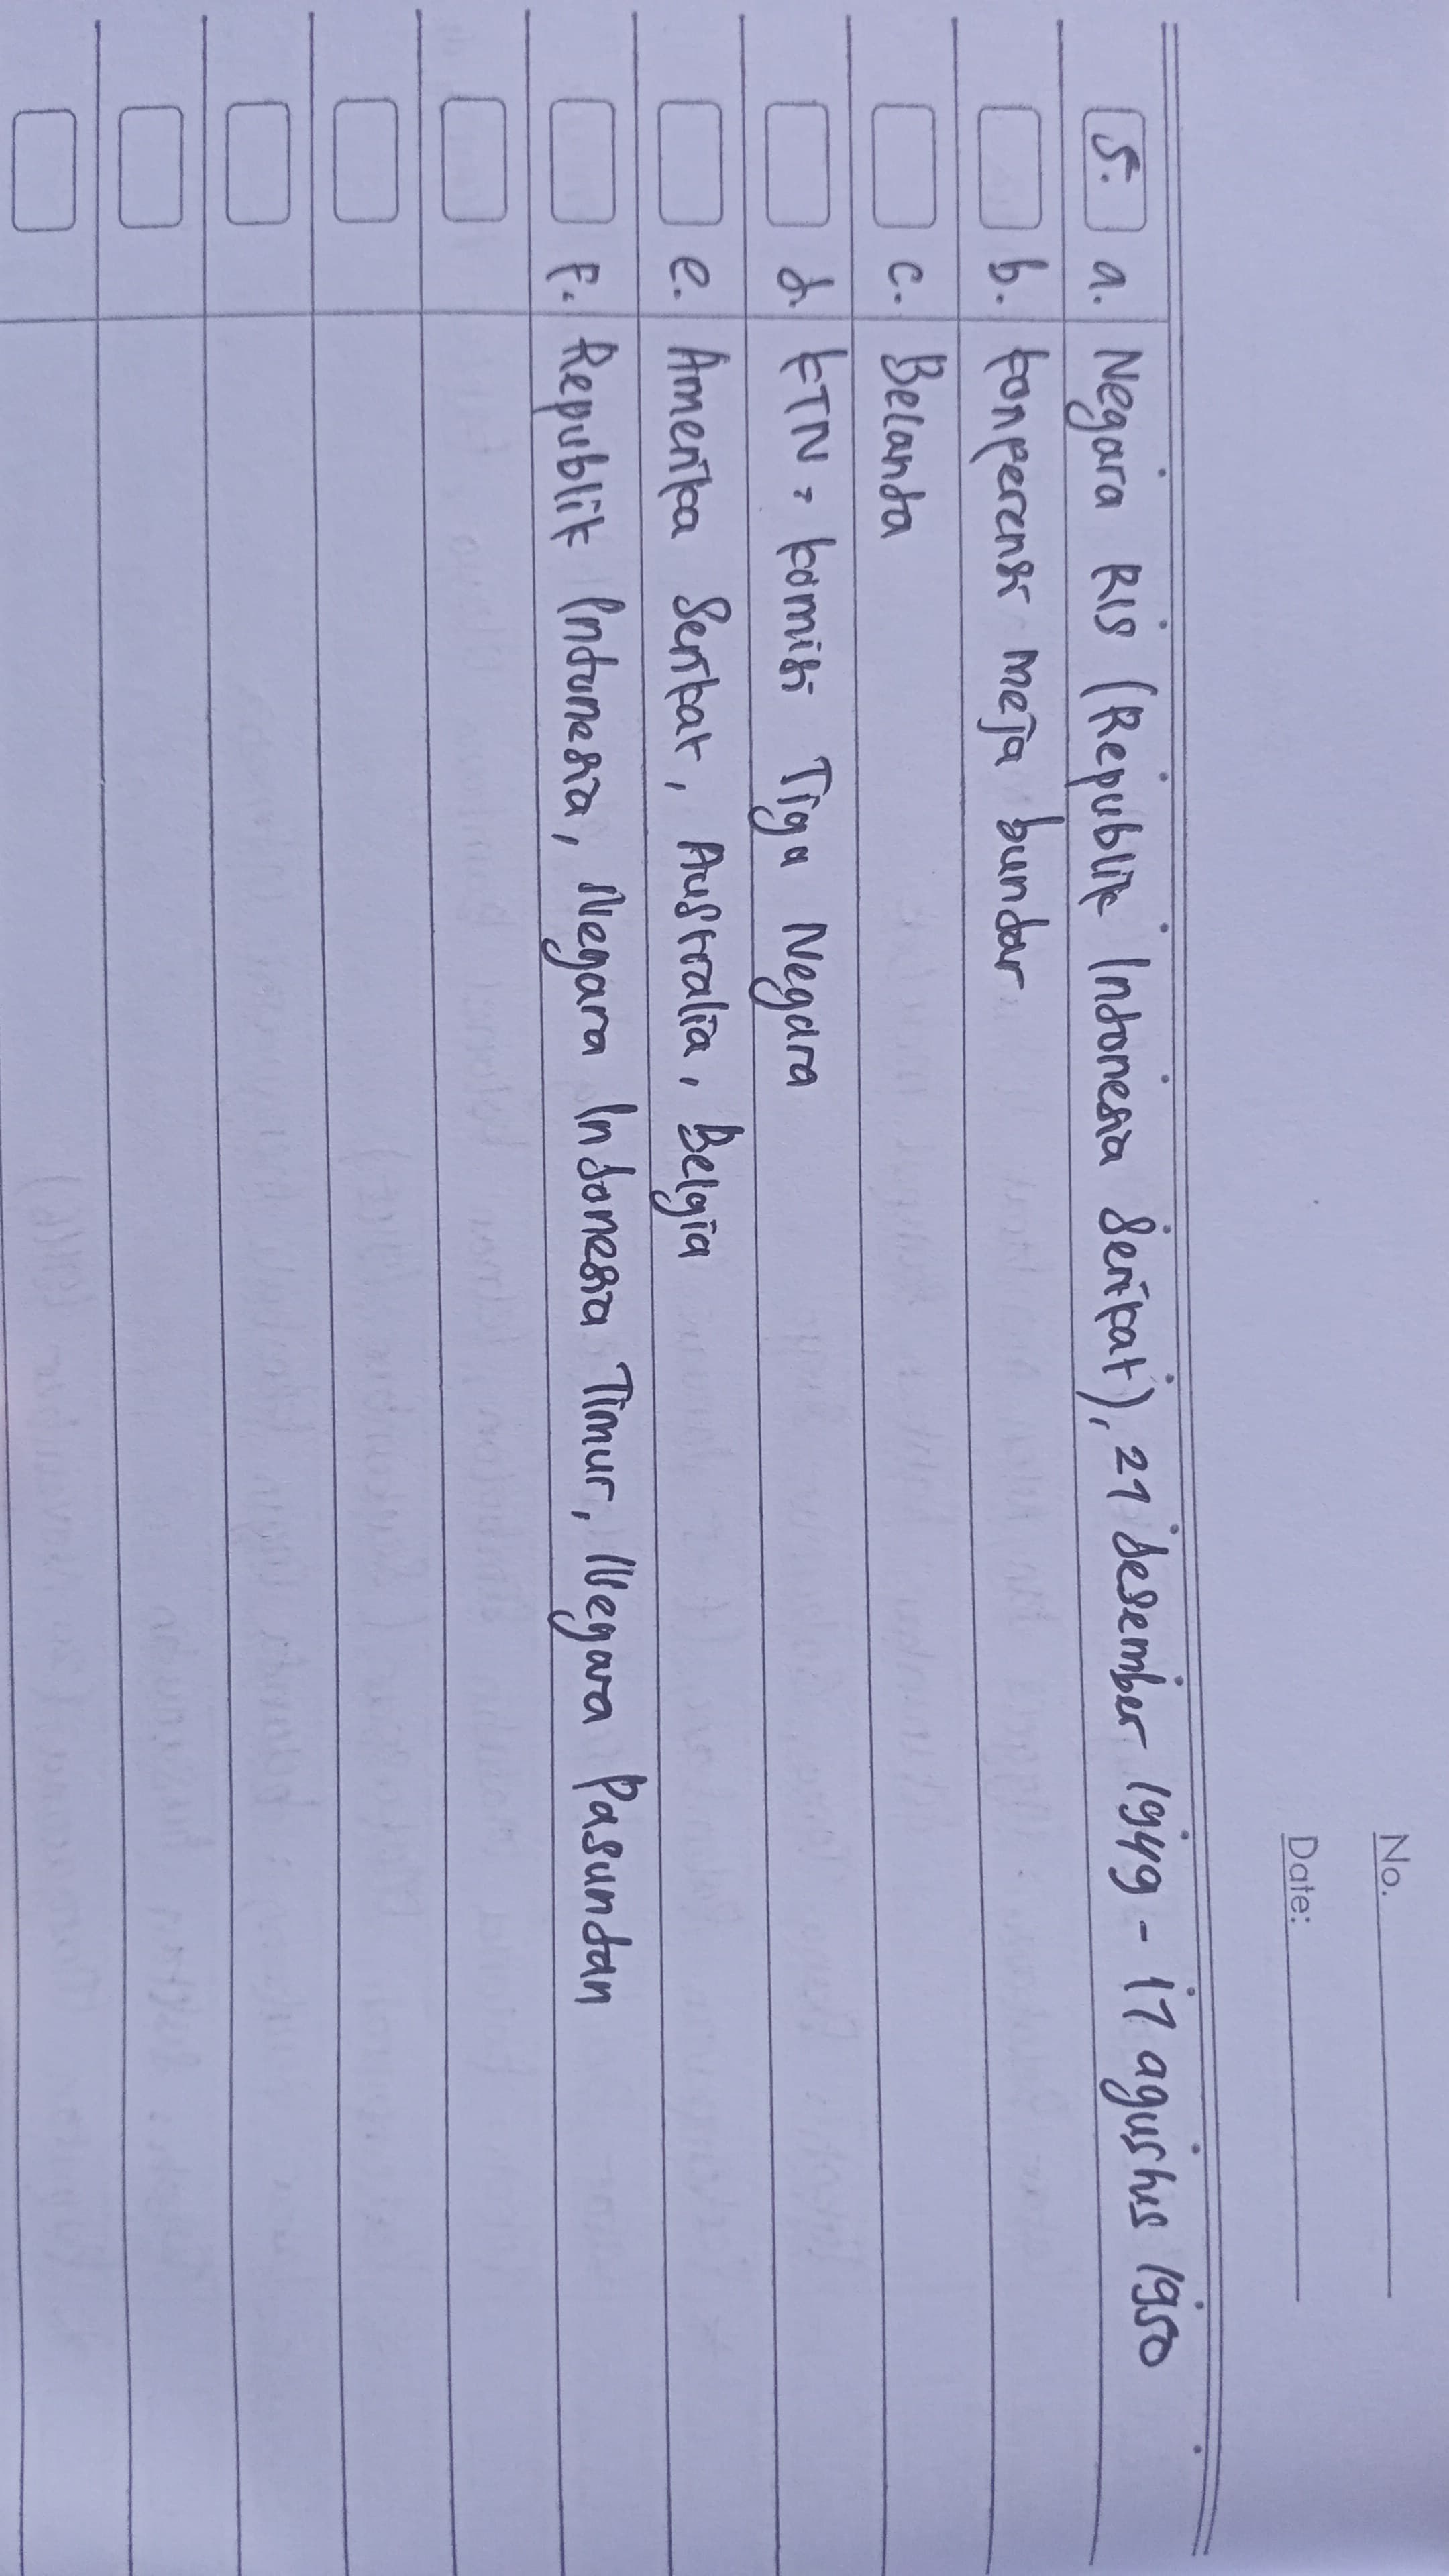 No.
Date:
5. a. Negara RIS (Republik Indonesia Serikat), 27 desember 1949 - 17 agustus 1950
b. konperensi meja bundar
c. Belanda
d. KTN = komisi Tiga Negara
e. Amerika Serikat, Australia, Belgia
F. Republik Indonesia, Negara Indonesia Timur, Negara Pasundan